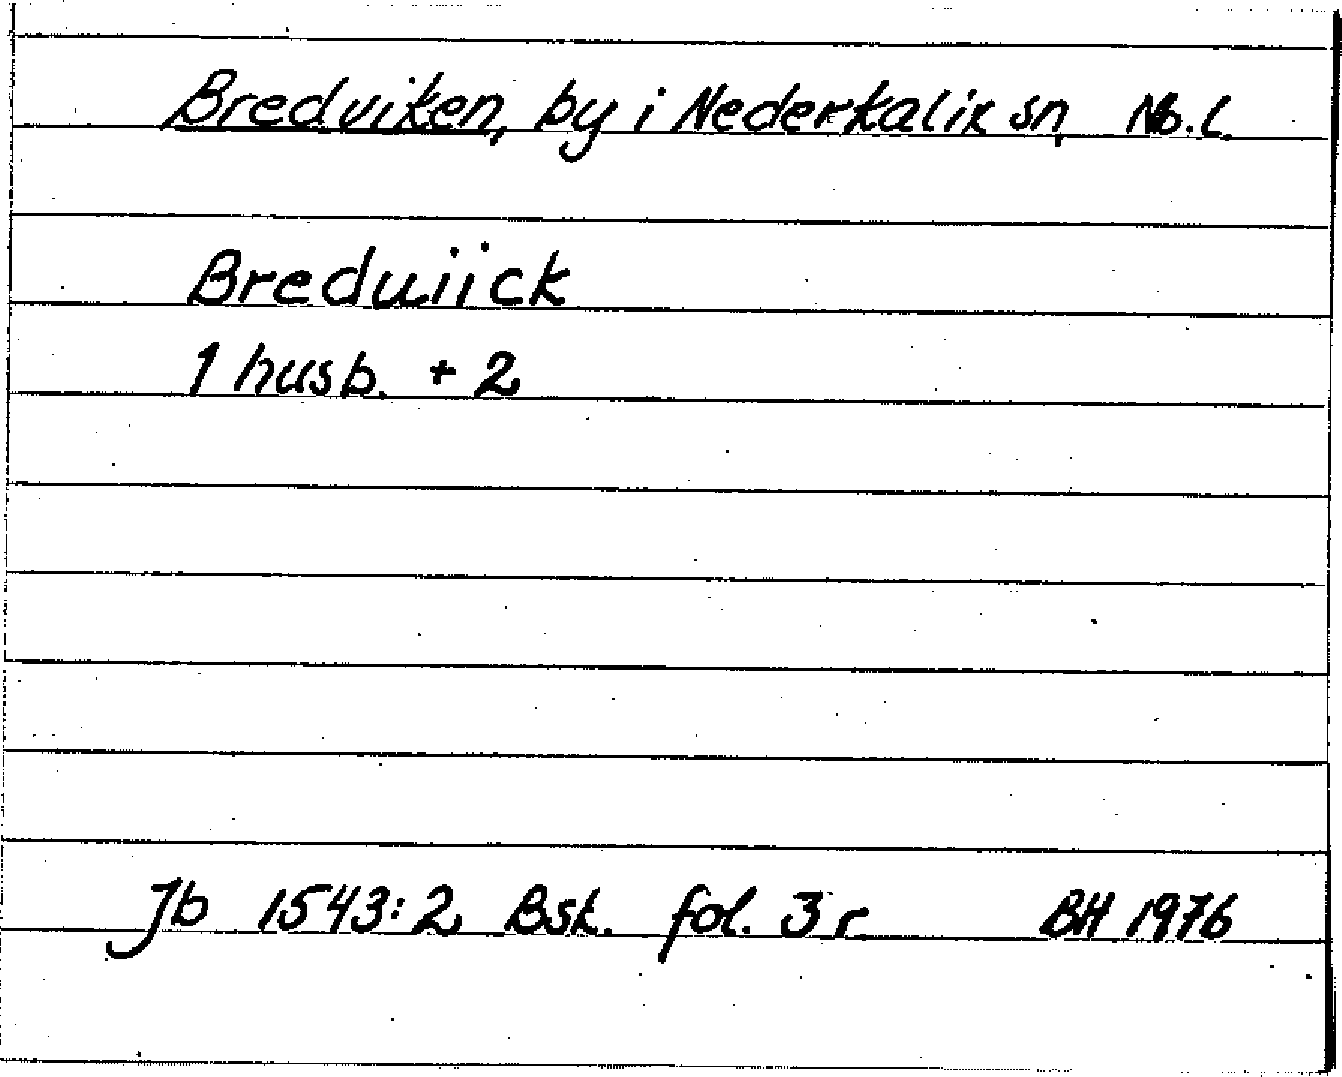 Bredviken, by i Nederkalix sn, Nb.l.
Breduiick
1 husb. + 2
Jb 1543:2 Bsk. fol. 3r BH 1976